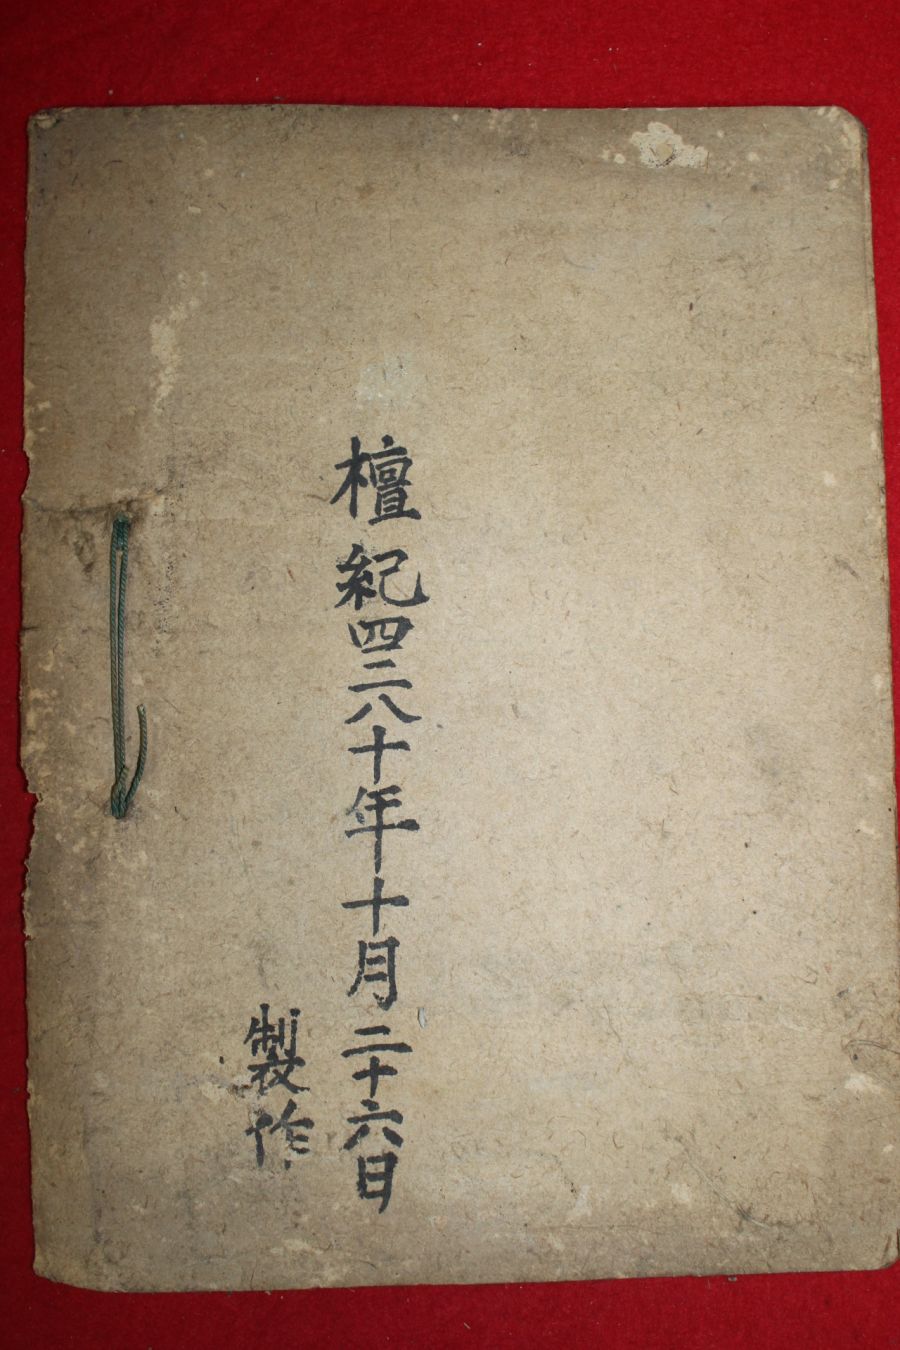 檀紀四二八十年十月二十六日
製作